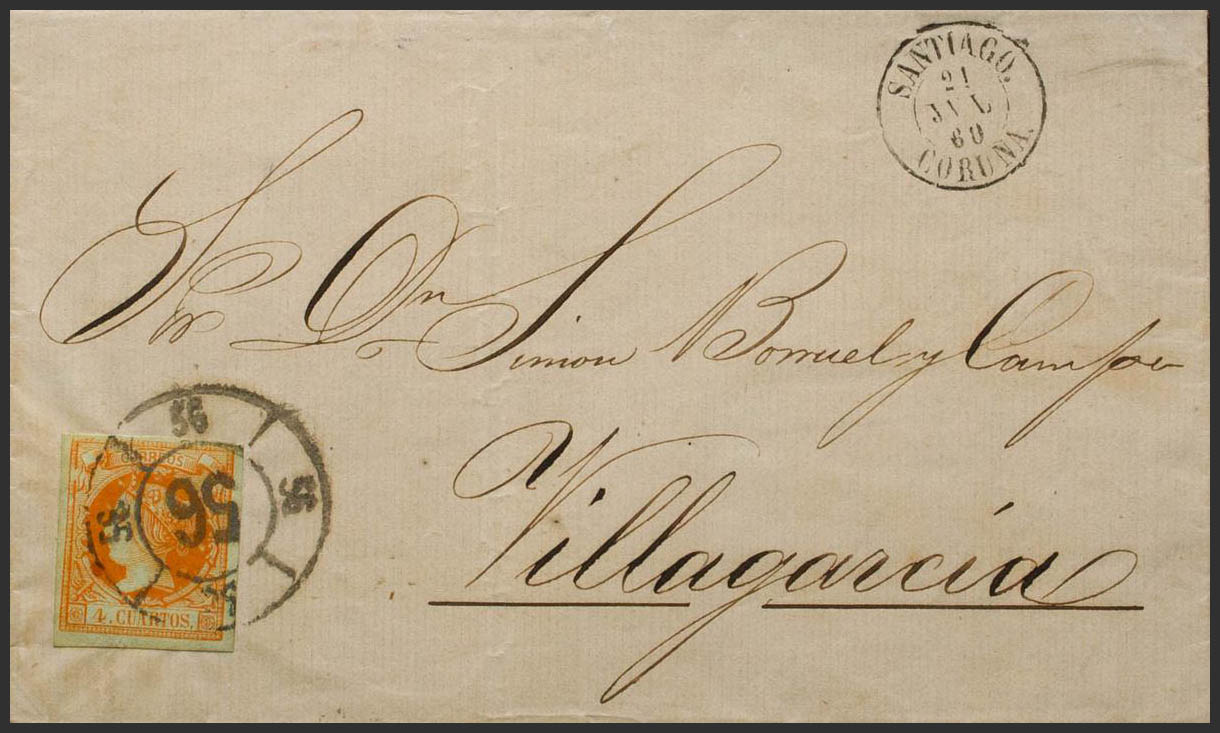 SANTIAGO.
21
JUL
60
CORUNA.
Sr. Dn Simon Borruel y Campo
Villagarcía
56
56
56
56
CORREOS
4. CUARTOS.